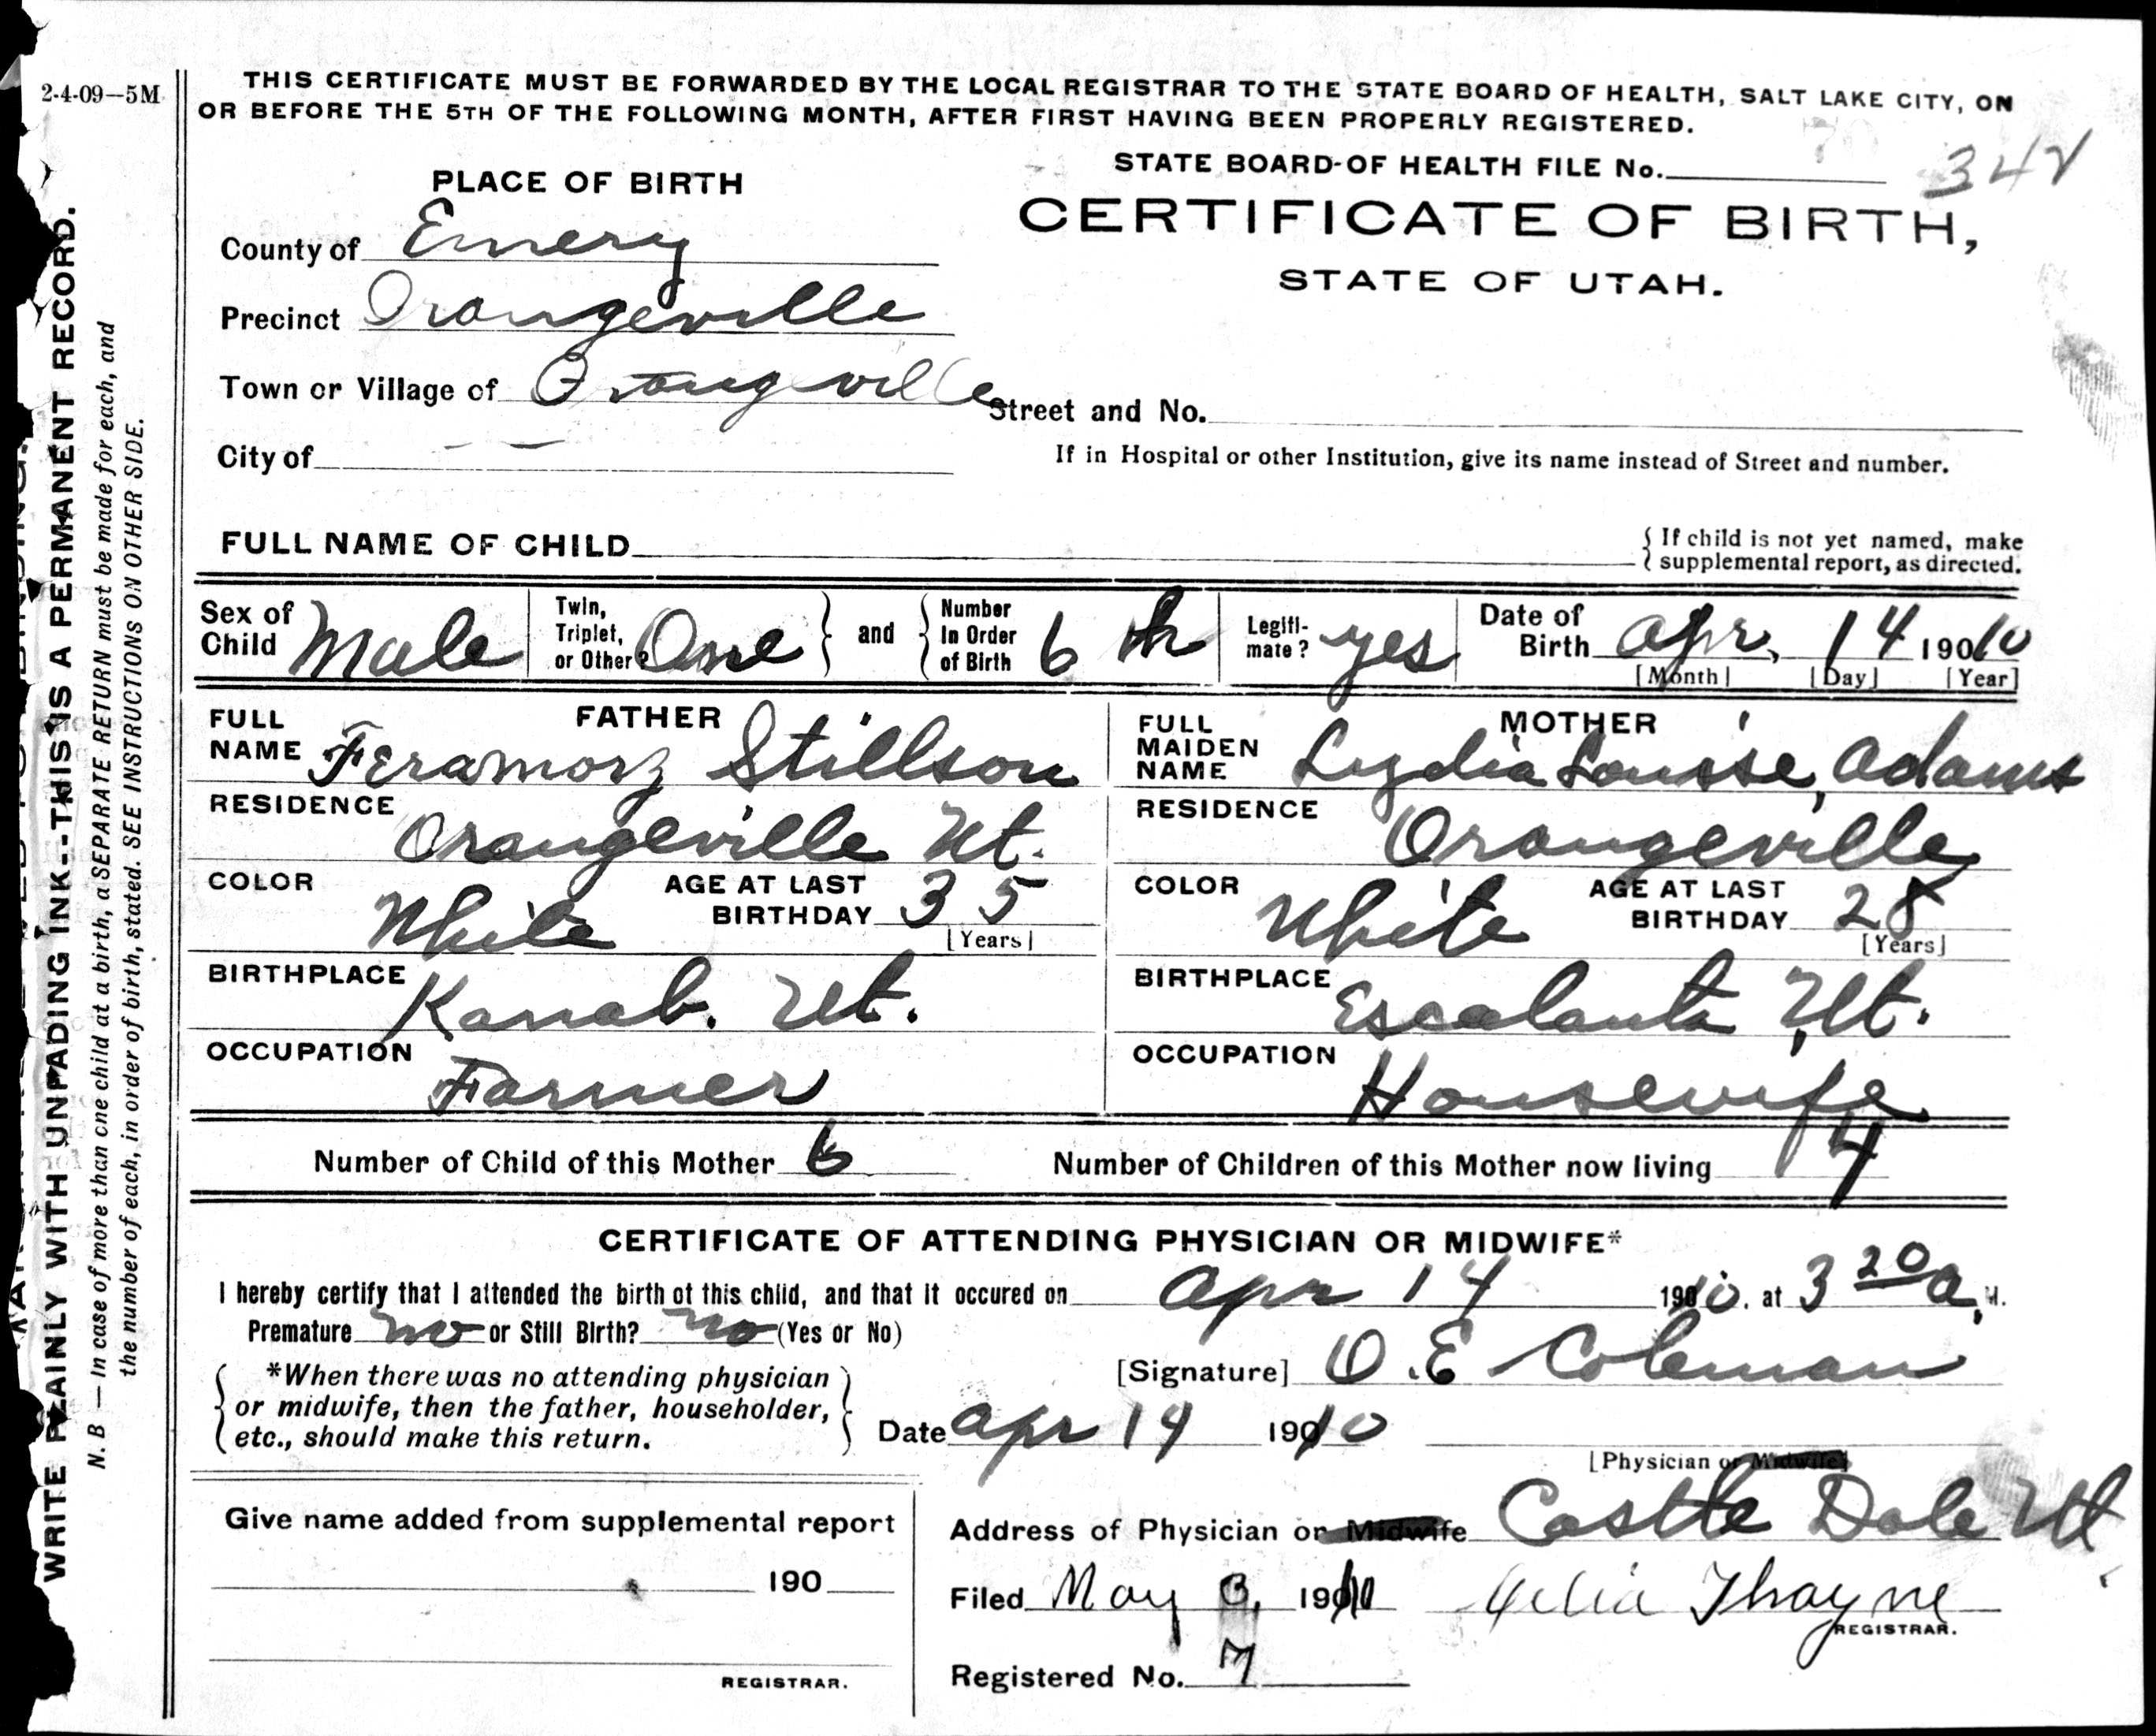 2-4-09—5M
THIS CERTIFICATE MUST BE FORWARDED BY THE LOCAL REGISTRAR TO THE STATE BOARD OF HEALTH, SALT LAKE CITY, ON
OR BEFORE THE 5TH OF THE FOLLOWING MONTH, AFTER FIRST HAVING BEEN PROPERLY REGISTERED.
STATE BOARD OF HEALTH FILE No. 342
CERTIFICATE OF BIRTH,
STATE OF UTAH.
PLACE OF BIRTH
County of Emery
Precinct Orangeville
Town or Village of Orangeville
Street and No.
City of — —
If in Hospital or other Institution, give its name instead of Street and number.
FULL NAME OF CHILD
{ If child is not yet named, make
supplemental report, as directed.
Sex of Child Male Twin, Triplet, or Other? One } and { Number In Order of Birth 6 th Legiti-mate? yes Date of Birth Apr. 14 19010
[Month] [Day] [Year]
FATHER
FULL NAME Feramorz Stillson
RESIDENCE Orangeville Ut.
COLOR White AGE AT LAST BIRTHDAY 35
[Years]
BIRTHPLACE Kanab. Ut.
OCCUPATION Farmer
MOTHER
FULL MAIDEN NAME Lydia Louise, Adams
RESIDENCE Orangeville
COLOR White AGE AT LAST BIRTHDAY 28
[Years]
BIRTHPLACE Escalante Ut.
OCCUPATION Housewife
Number of Child of this Mother 6 Number of Children of this Mother now living 4
CERTIFICATE OF ATTENDING PHYSICIAN OR MIDWIFE*
I hereby certify that I attended the birth of this child, and that it occured on Apr 14 1910. at 3 20 a. M.
Premature no or Still Birth? no (Yes or No)
*When there was no attending physician
or midwife, then the father, householder,
etc., should make this return.
[Signature] O. E Coleman
Date Apr 14 1910
[Physician or Midwife]
Address of Physician or Midwife Castle Dale Ut.
Give name added from supplemental report
190
REGISTRAR.
Filed May 3, 1910 Thayne
REGISTRAR.
Registered No. 7
WRITE PLAINLY WITH UNFADING INK--THIS IS A PERMANENT RECORD.
N. B — In case of more than one child at a birth, a SEPARATE RETURN must be made for each, and
the number of each, in order of birth, stated. SEE INSTRUCTIONS ON OTHER SIDE.